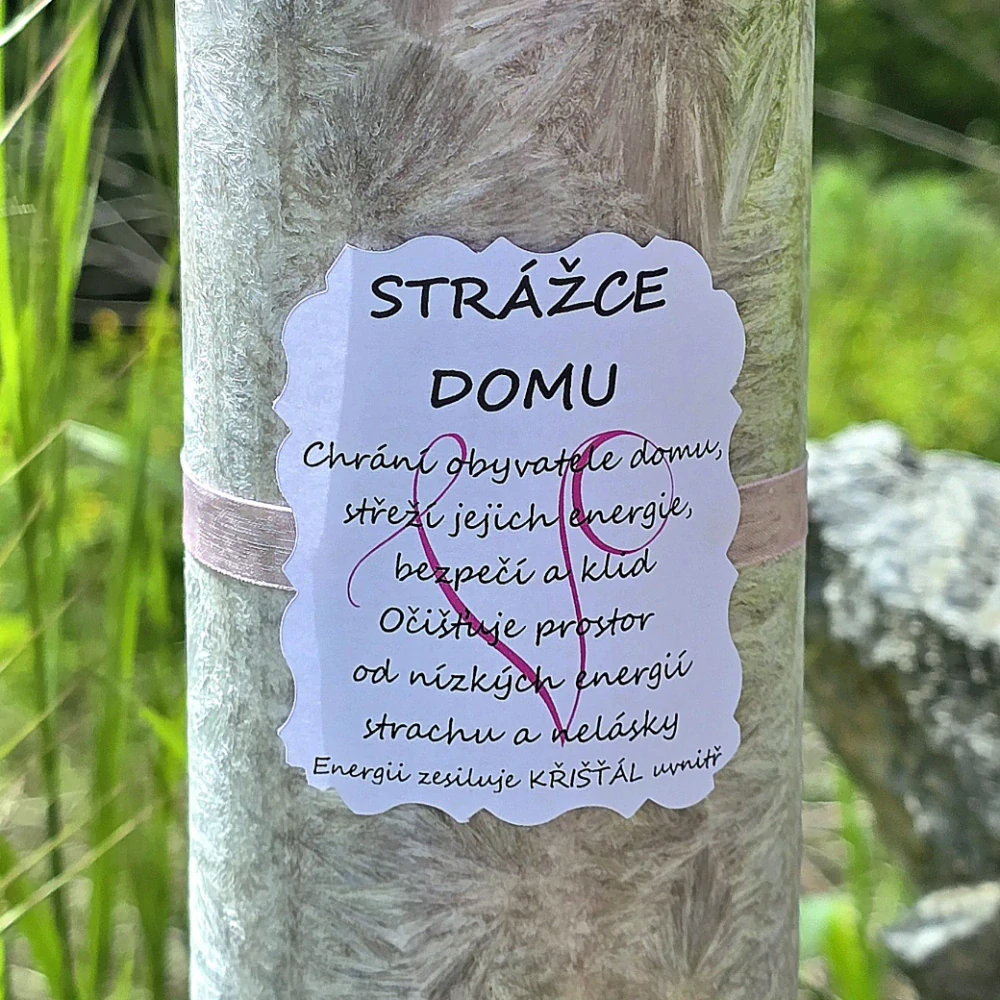 STRÁŽCE
DOMU
Chrání obyvatele domu,
střeží jejich energie,
bezpečí a klid
Očišťuje prostor
od nízkých energií
strachu a nelásky
Energii zesiluje KŘIŠŤÁL uvnitř